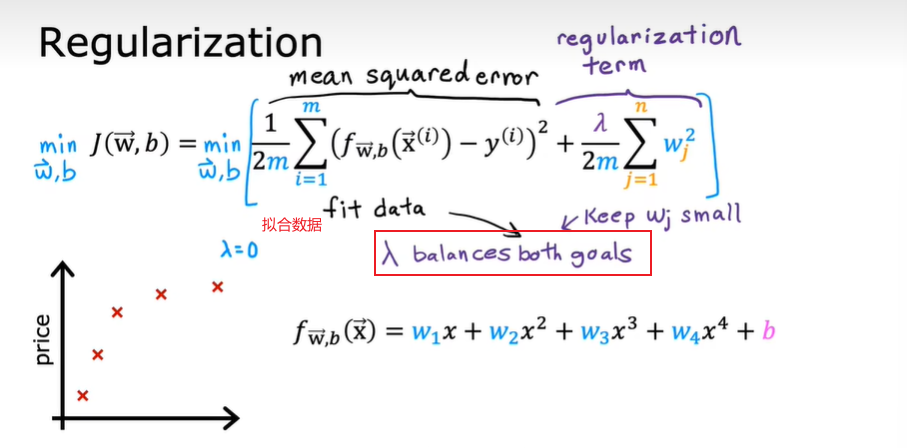 Regularization
mean squared error
regularization term
min_{w⃗,b} J(w⃗,b) = min_{w⃗,b} [ \frac{1}{2m} \sum_{i=1}^{m} (f_{w⃗,b}(x⃗^{(i)}) − y^{(i)})^2 + \frac{λ}{2m} \sum_{j=1}^{n} w_j^2 ]
fit data
拟合数据
Keep w_j small
λ balances both goals
λ=0
price
f_{w⃗,b}(x⃗) = w_1x + w_2x^2 + w_3x^3 + w_4x^4 + b